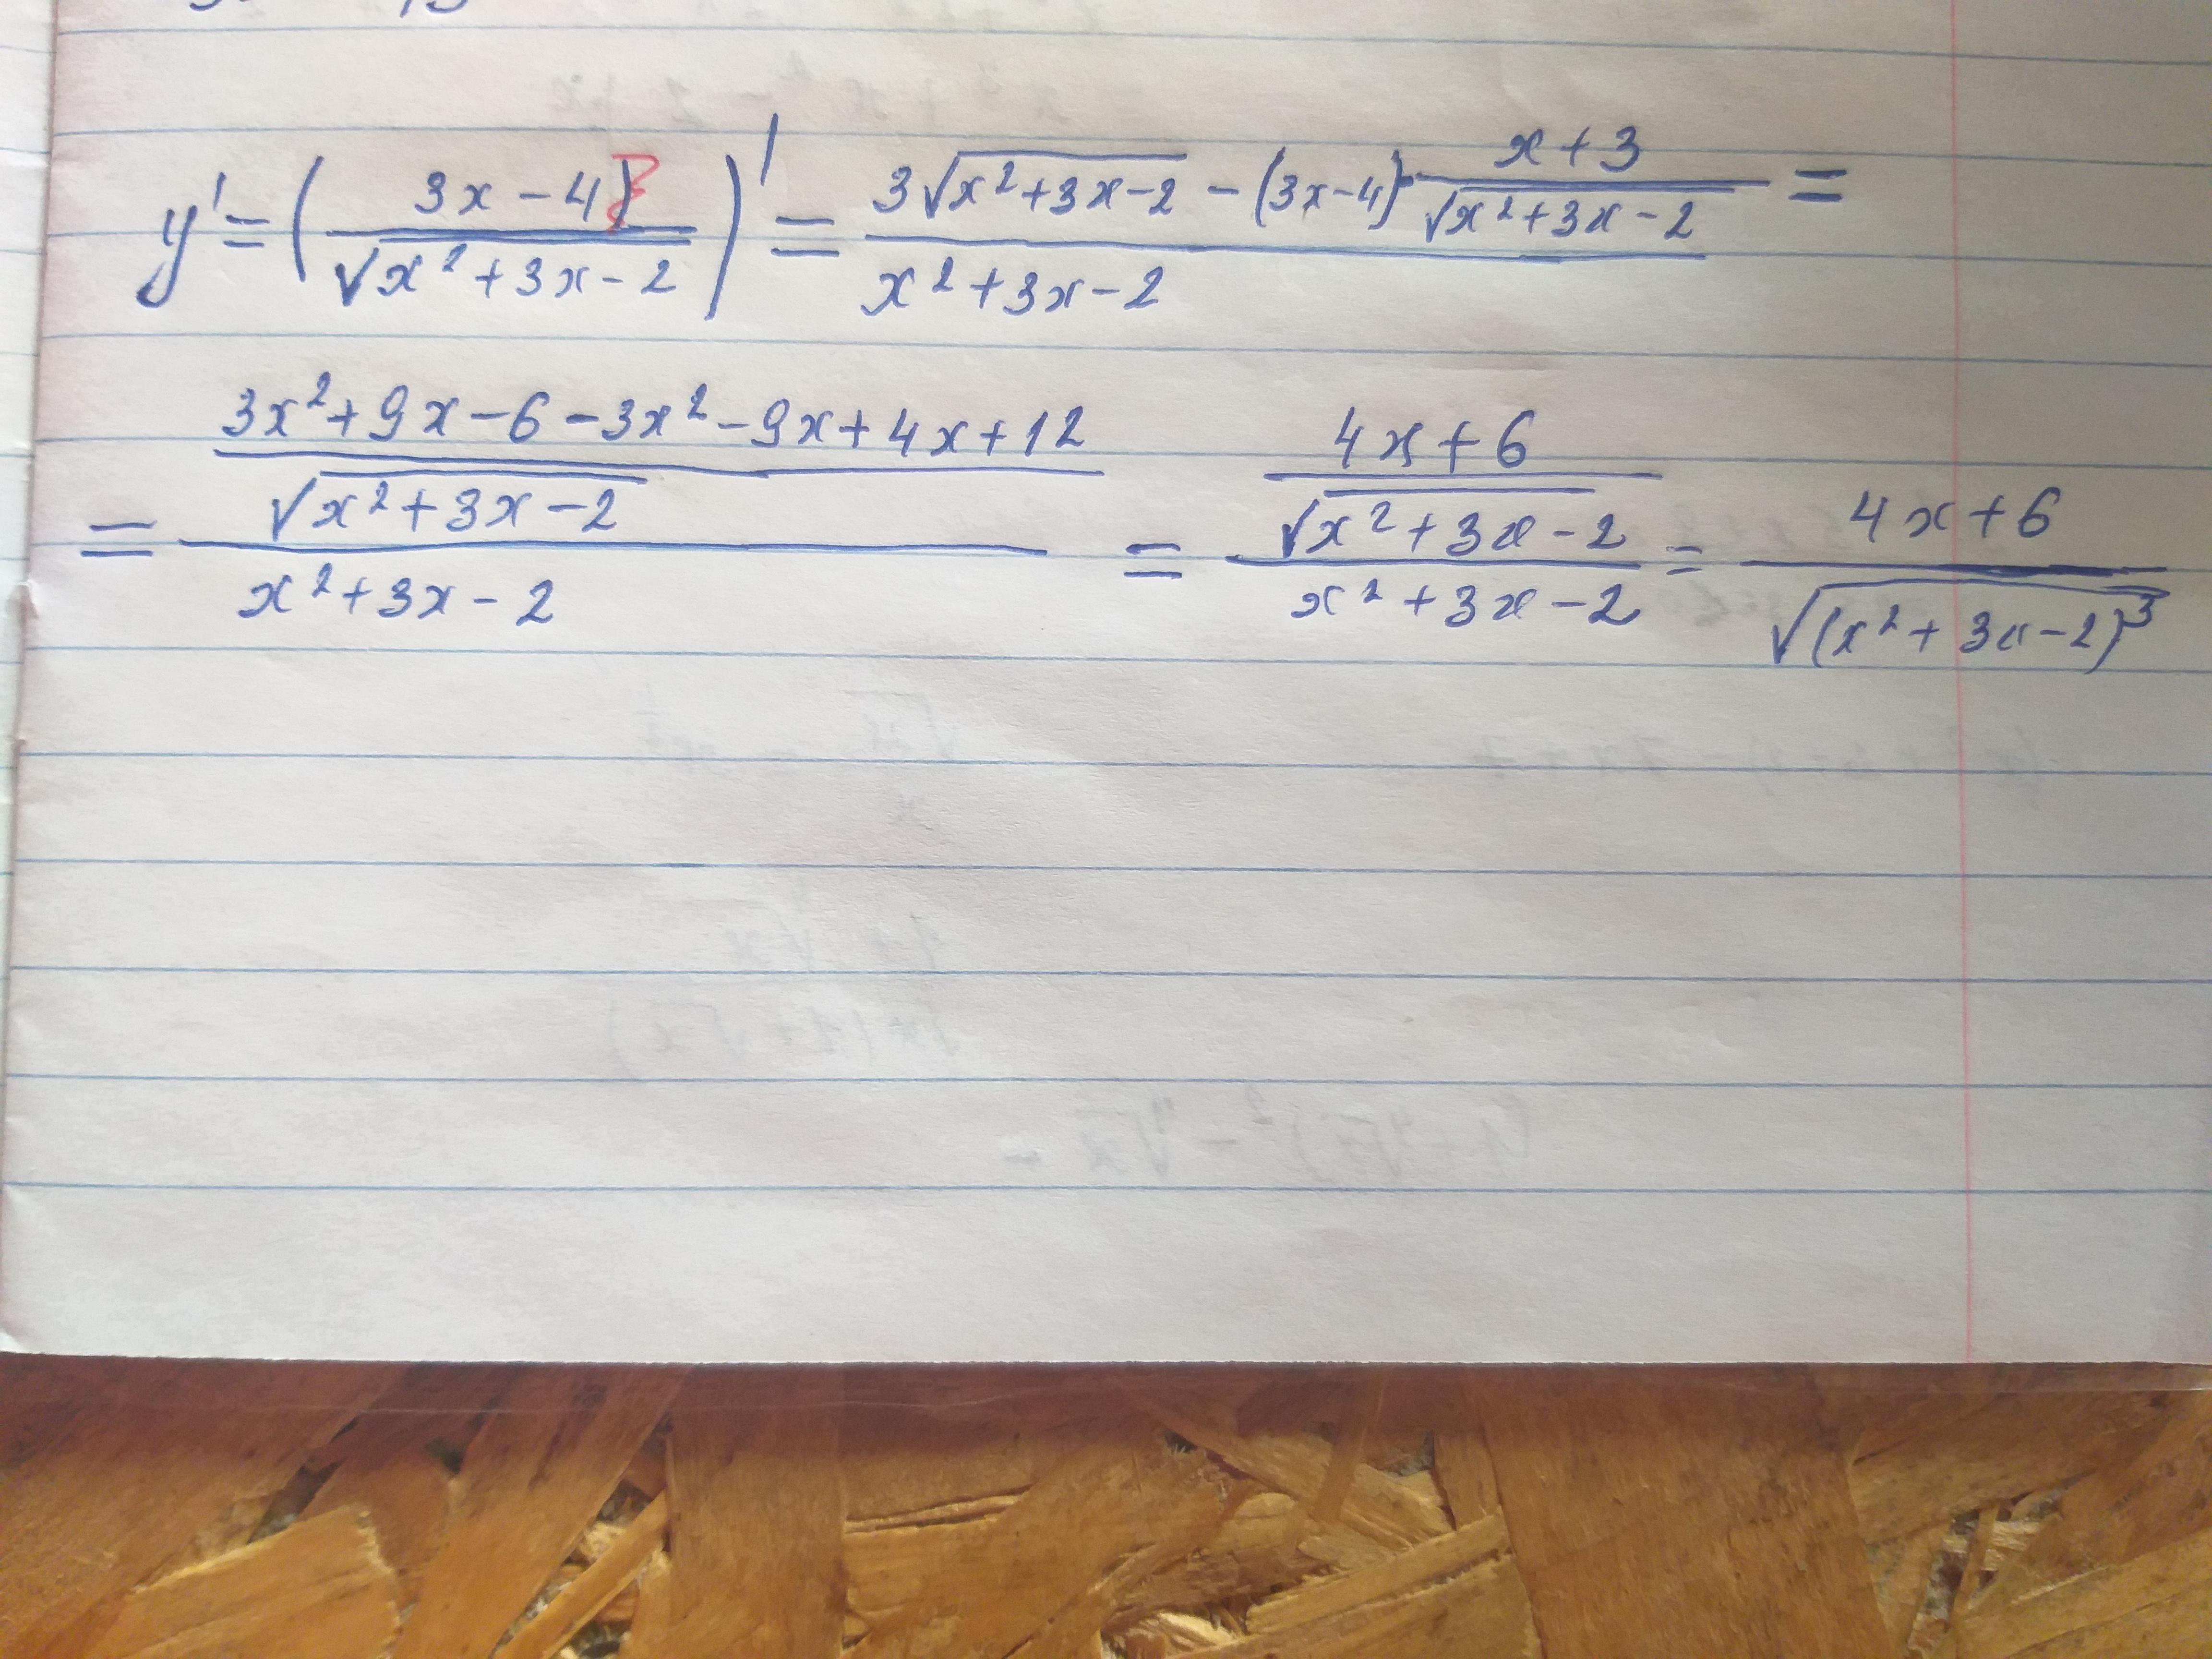 y' = ( (3x - 4) / √(x² + 3x - 2) )' = (3√(x² + 3x - 2) - (3x - 4) · (x + 3) / √(x² + 3x - 2)) / (x² + 3x - 2) =
= ((3x² + 9x - 6 - 3x² - 9x + 4x + 12) / √(x² + 3x - 2)) / (x² + 3x - 2) = ((4x + 6) / √(x² + 3x - 2)) / (x² + 3x - 2) = (4x + 6) / √((x² + 3x - 2)³)